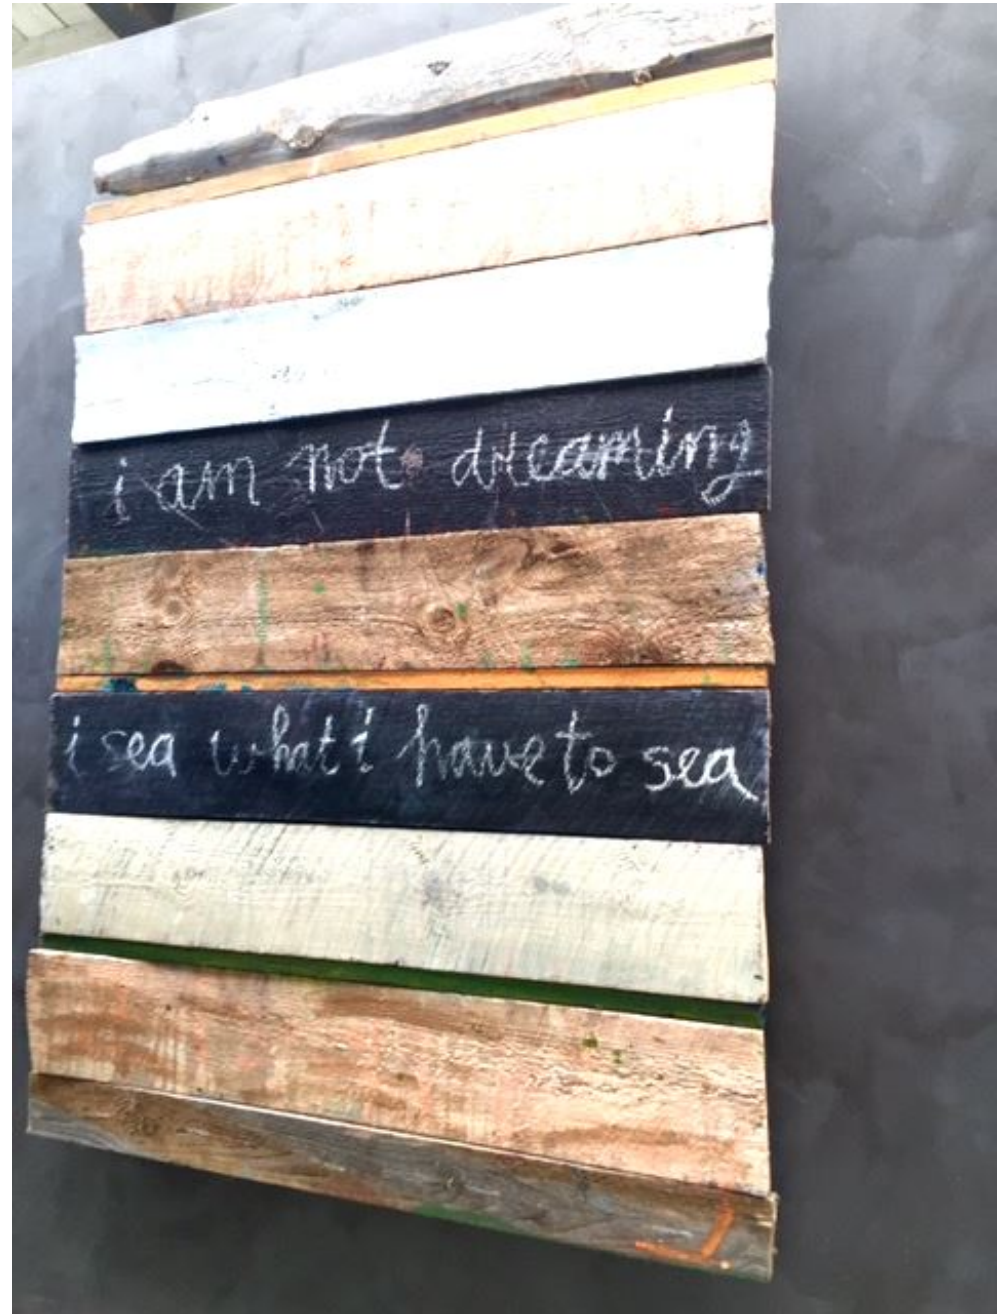 i am not dreaming
i sea what i have to sea